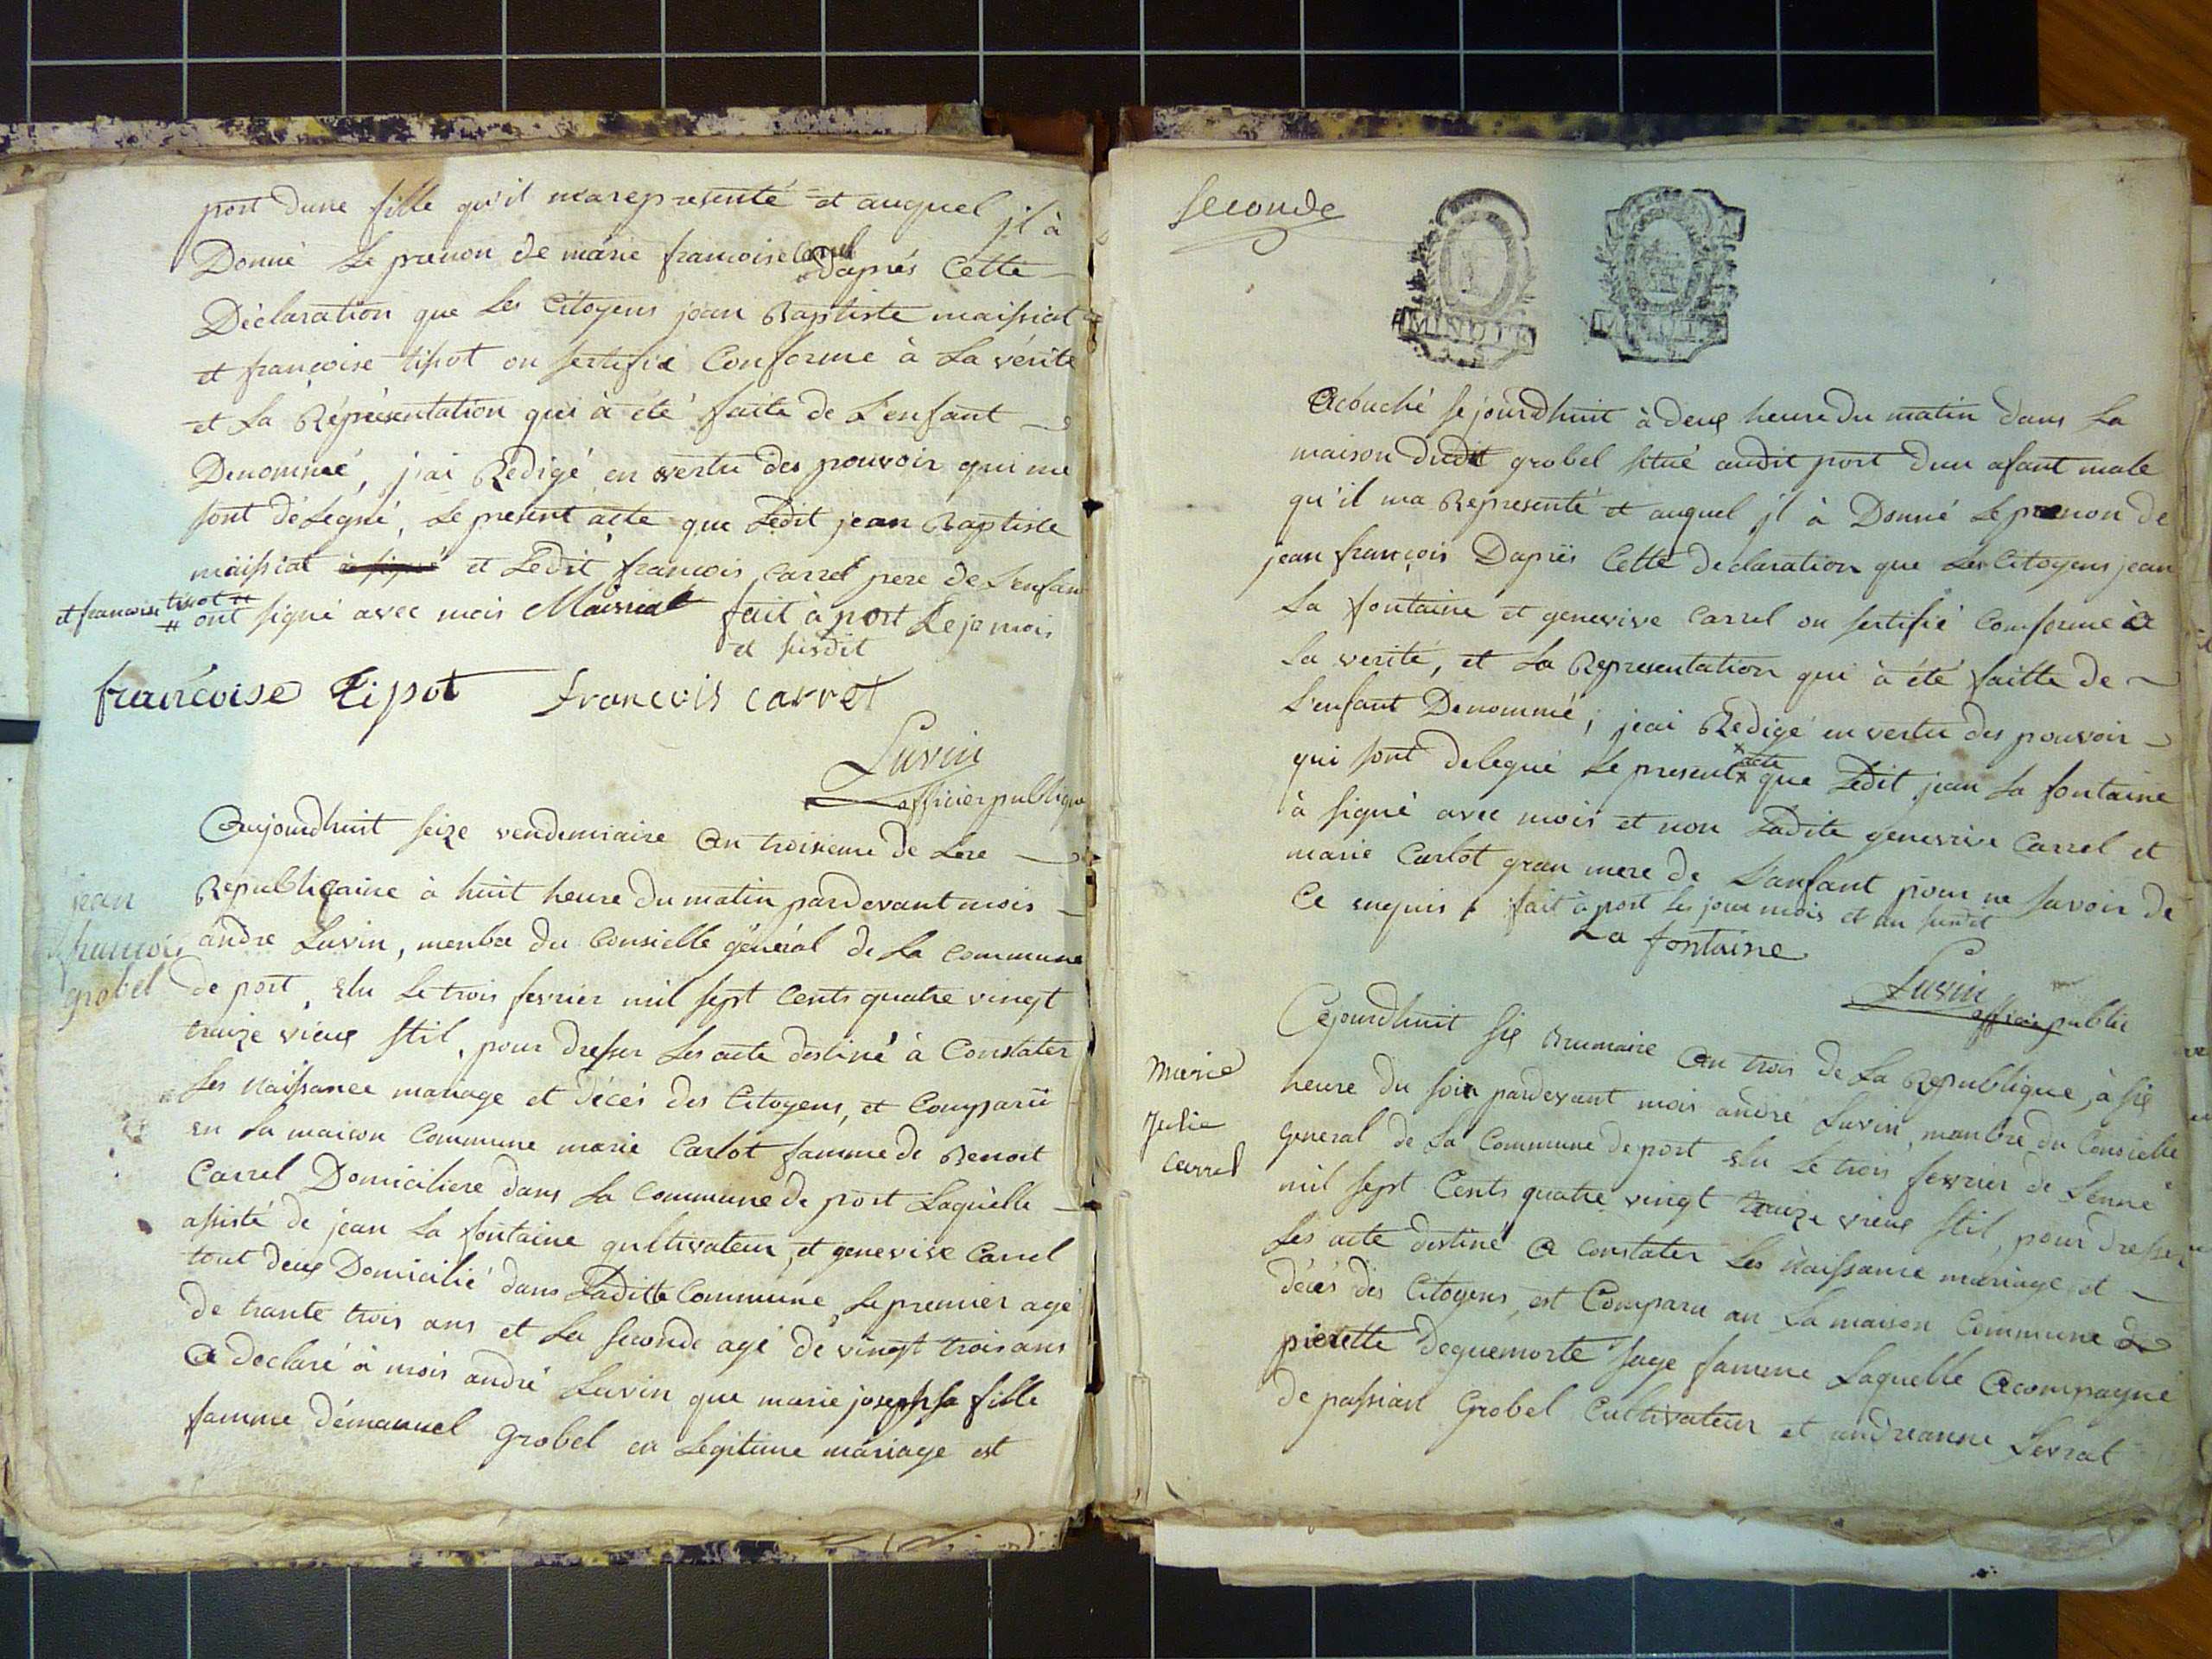 port dune fille qu'il ma representé et auquel jl à
Donné Le prenon de marie francoise Carrel Daprés Cette
Déclaration que Les Citoyens jean Baptiste maissiat
et françoise tipot on sertifié Conforme à La vérité
et La Réprésentation qui à été faite de L'enfant
Denommé, j'ai Rédigé en vertu des pouvoir qui me
sont délégué, Le present acte que Ledit jean Baptiste
maissiat à signé et Ledit francois Carrel pere de L'enfant
et francoise tipot # # ont signé avec mois Maissiat fait à port Le jo mois
et susdit
françoise tipot francois carrel
Luvin
officier publique
jean
francois
grobel
Aujourdhuit seize vendemiaire an troisieme de Lere
Republicaine à huit heure du matin pardevant mois
andre Luvin, menbre du Consielle général de La Commune
de port, elu Le trois fevrier mil sept Cents quatre vingt
traize vieux stil, pour dresser Les acte destiné à Constater
Les naissance mariage et décés des Citoyens, et Comparü
en La maison Commune marie Carlot famme de Benoit
Carrel Domiciliere dans La Commune de port Laquelle
assisté de jean La fontaine qultivateur, et genevive Carrel
tout deux Domicilié dans Laditte Commune, Le premier agé
de trante trois ans et La seconde agé de vingt trois ans
a declaré à mois andré Luvin que marie joseph sa fille
famme démanuel grobel en Legitime mariage est
seconde
MINUTE
MINUTE
Acouché sejourdhuit à deux heure du matin dans La
maison dudit grobel situé audit port dun afant male
qu'il ma Representé et auquel jl à Donné Le prenon de
jean françois Daprés Cette declaration que Les Citoyens jean
La fontaine et genevive Carrel on sertifié Comforme a
La verité, et La Representation qui à été faitte de
L'enfant Denommé, jeai Redigé en vertu des pouvoir
qui sont delegué Le present x acte x que Ledit jean La fontaine
à signé avec mois et non Ladite genevive Carrel et
marie Carlot gran mere de Lanfant pour ne savoir de
Ce enquis fait à port Les jour mois et an susdit
La fontaine
Luvin
officier public
Marie
Julie
Carrel
Cejourdhuit six Brumaire an trois de La Republique, à six
heure du soir pardevant mois andré Luvin, manbre du Consielle
general de La Commune de port elu Le trois fevrier de Lenné
mil sept Cents quatre vingt traize vieux stil, pour dresser
Les acte destiné a constater Les naissance mariage et
décés des Citoyens, est Comparu an La maison Commune
pierette deguemorte sage famme Laquelle Acompagné
de passian Grobel Cultivateur et andreanne Levrat